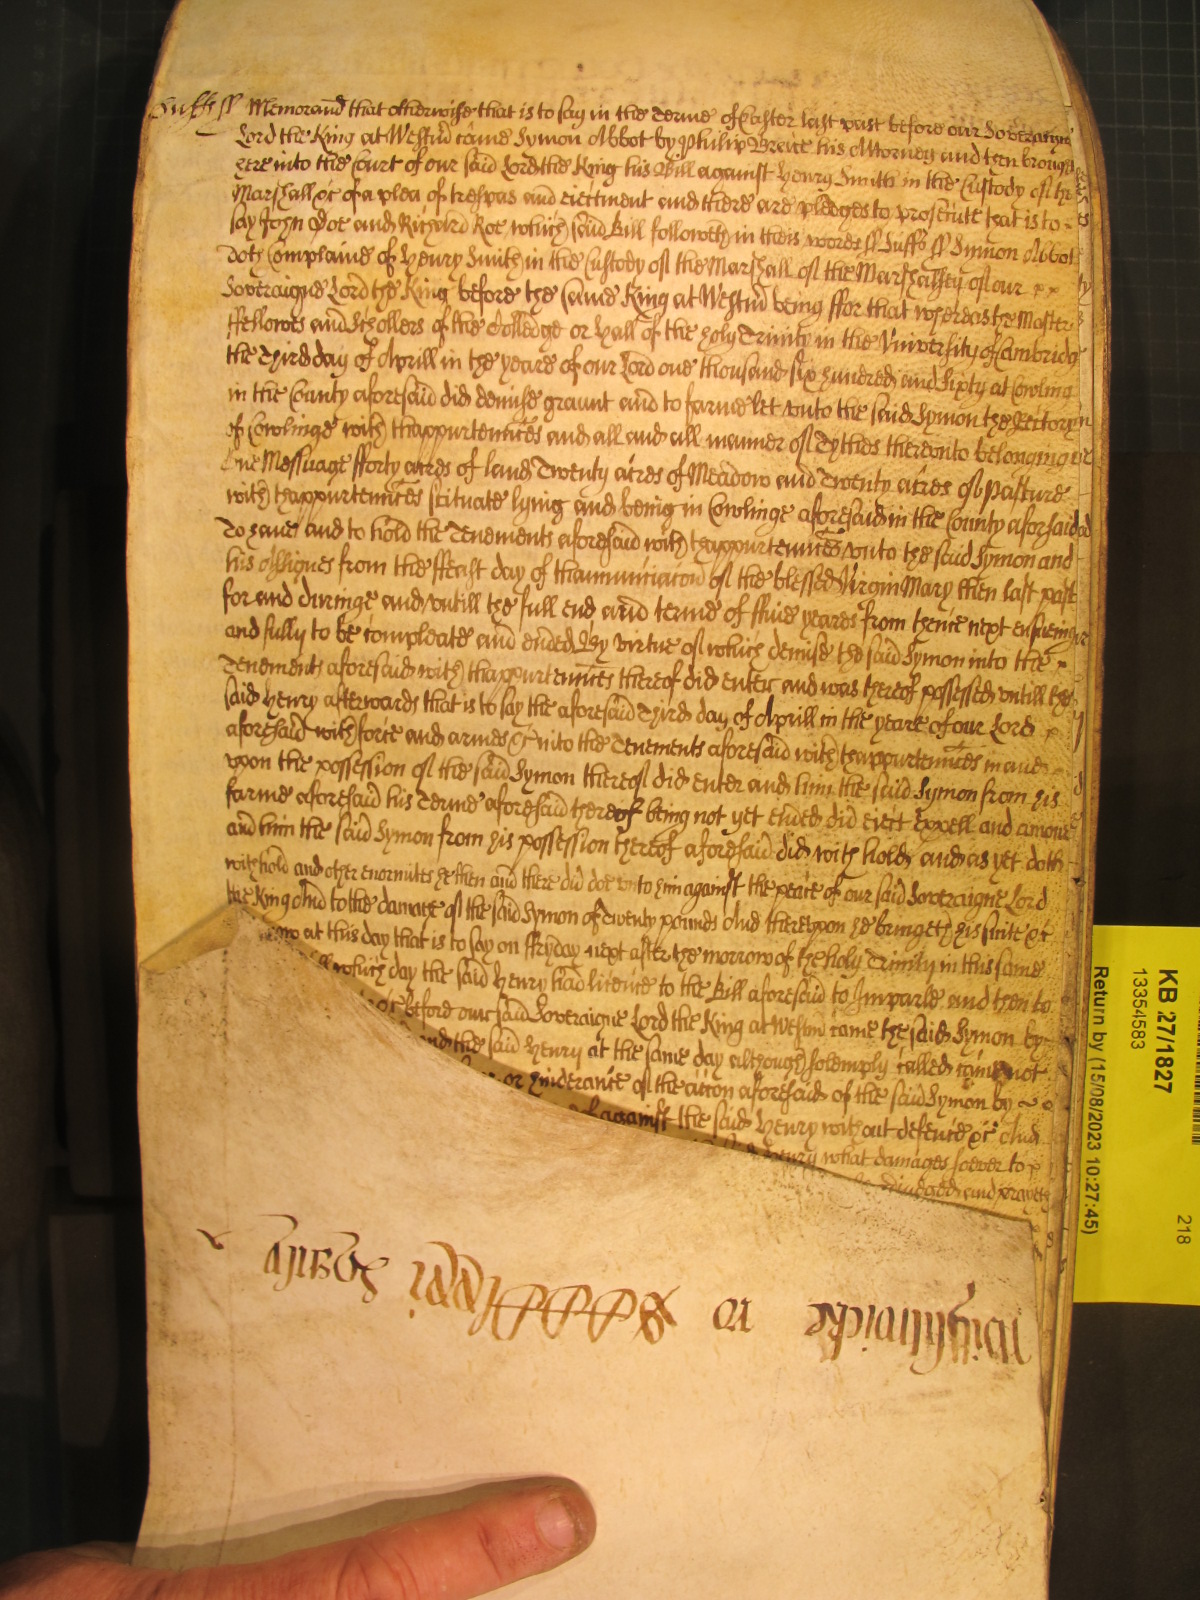 Suff ss Memorand that otherwise that is to say in the Terme of Easter last past before our Soveraigne
Lord the King at Westm came Symon Abbot by Philip Breite his Attorney and then brought
here into the Court of our said Lord the King his Bill against Henry Smith in the Custody of the
Marshall &c of a plea of trespas and eiectment and there are pledges to prosecute that is to
say John Doe and Richard Roe which said Bill followeth in theis words ss Suff ss Symon Abbot
doth Complaine of Henry Smith in the Custody of the Marshall of the Marshalsey of our
Soveraigne Lord the King before the same King at Westm being ffor that whereas the Master
ffellowes and Schollers of the Colledge or Hall of the holy Trinity in the University of Cambridge
the Third day of Aprill in the yeare of our Lord one thousand six hundred and sixty at Cowling
in the County aforesaid did demise graunt and to farme let unto the said Symon the Rectory
of Cowlinge with thappurtennces and all and all manner of Tythes thereonto belonging
One Messuage fforty acres of land Twenty acres of Meadow and Twenty acres of Pasture
with thappurtennces scituate lying and being in Cowlinge aforesaid in the County aforesaid
To have and to hold the Tenements aforesaid with thappurtennces unto the said Symon and
his Assignes from the ffeast day of thannunciacon of the blessed Virgin Mary then last past
for and duringe and untill the full end and terme of ffive yeares from thence next ensueinge
and fully to be compleate and ended By virtue of which demise the said Symon into the
Tenements aforesaid with thappurtennces thereof did enter and was thereof possessed untill the
said Henry afterwards that is to say the aforesaid Third day of Aprill in the yeare of our Lord
aforesaid with force and armes &c into the Tenements aforesaid with thappurtennces in and
upon the possession of the said Symon thereof did enter and him the said Symon from his
farme aforesaid his Terme aforesaid thereof being not yet ended did eiect expell and amove
and him the said Symon from his possession thereof aforesaid did with hold and as yet doth
withhold and other enormities he then and there did doe unto him against the peace of our said Soveraigne Lord
the King And to the damage of the said Symon of Twenty pounds And thereupon he bringeth his suite &c
now at this day that is to say on ffryday next after the morrow of the holy Trinity in this same
which day the said Henry had licence to the Bill aforesaid to Imparle and then to
&c before our said Soveraigne Lord the King at Westm came the said Symon by
and the said Henry at the same day although solemply called came not
or hinderance of the accon aforesaid of the said Symon by
against the said Henry without defence &c And
Henry what damages soever to
adiudged and prayeth